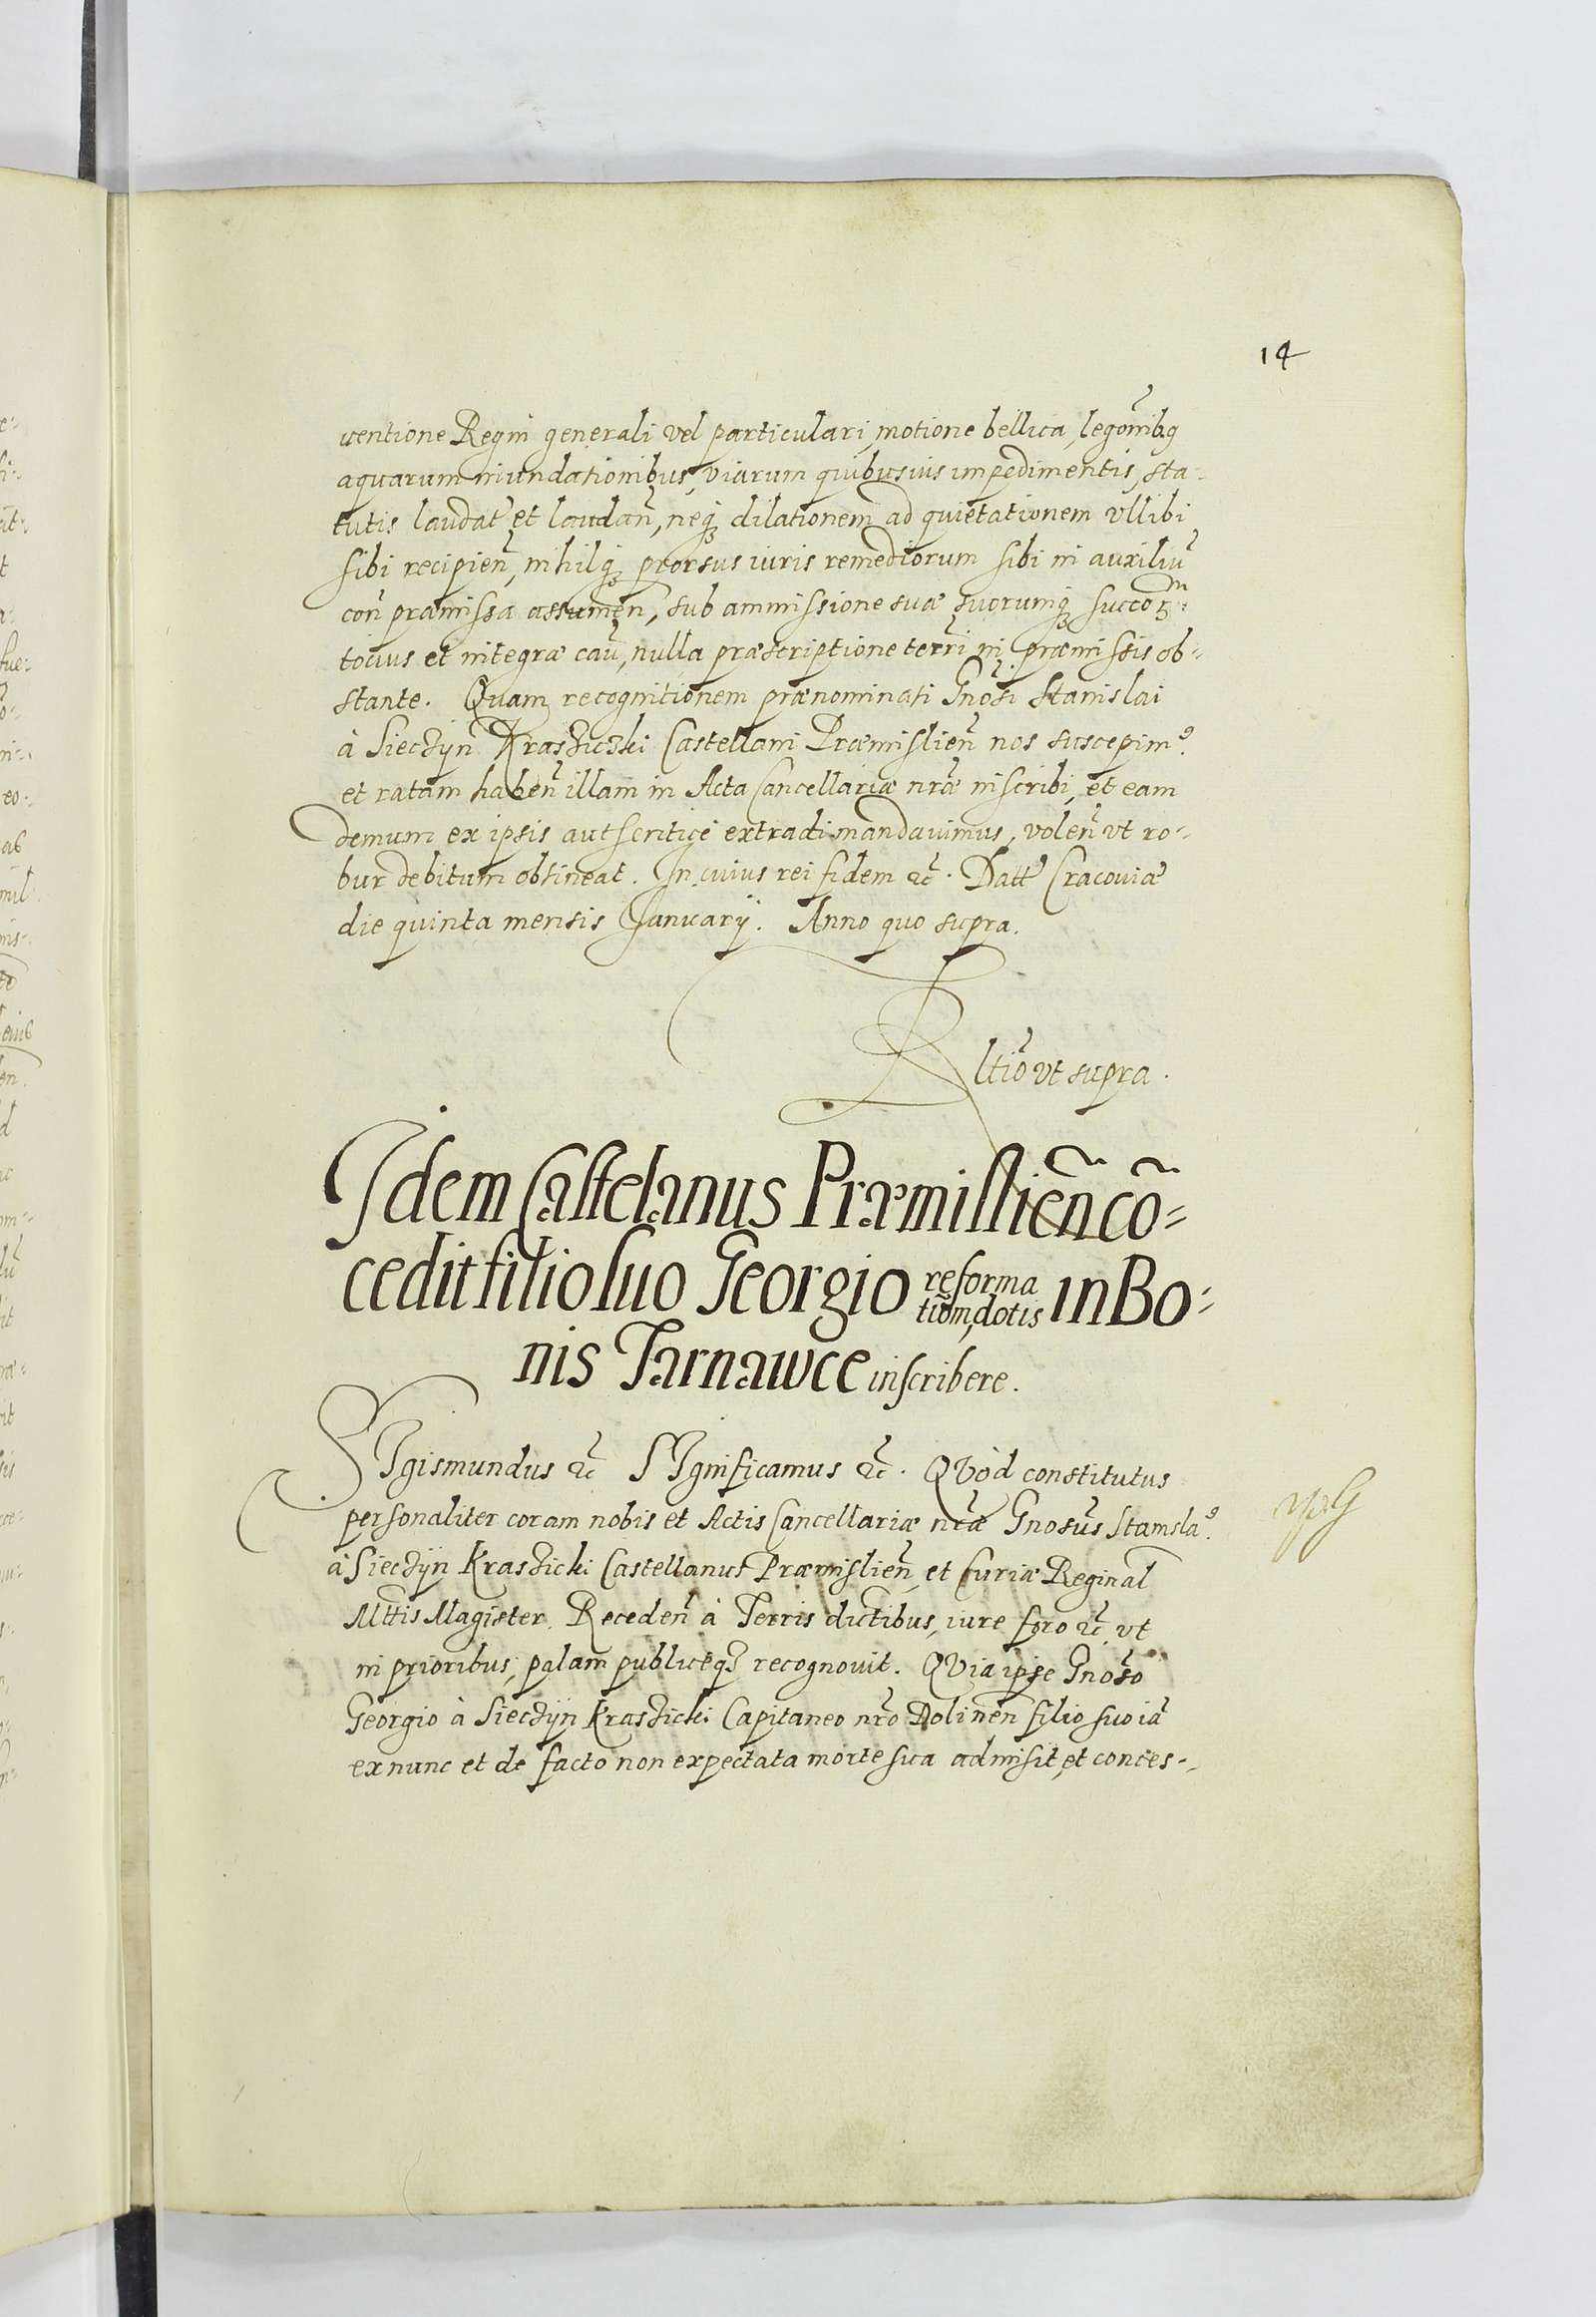 14
uentione Regni generali vel particulari, motione bellica, legõnibq́
aquarum inundationibus, viarum quibusuis impedimentis, sta-
tutis laudat̃ et laudañ, neq́ dilationem ad quietationem vllibi
sibi recipieñ, nihilq́ prorsus iuris remediorum sibi in auxiliũ
coñ præmissa assumeñ, sub ammissione suæ suorumq́
totius et integræ cau̅, nulla præscriptione terrĩ in præmissis ob-
stante. Quam recognitionem prænominati Gnõsi Stanislai
à Sieczÿn Krasziczki Castellani Præmislieñ nos suscepim9
et ratam habeñ illam in Acta Cancellariæ nr̃æ inscribi, et eam
demum ex ipsis authenticè extradi mandauimus, voleñ vt ro-
bur debitum obtineat. In cuius rei fidem &c̃. Datt̃ Cracouiæ
die quinta mensis Januarÿ. Anno quo supra.
Rltiõ vt supra.
Idem Castelanus Præmislieñ cõ-
cedit filio suo Georgio reforma
tiõm, dotis in Bo-
nis Tarnawce inscribere.
SIgismundus &c̃ SIgnificamus &c̃. QVòd constitutus
personaliter coram nobis et Actis Cancellariæ nr̃æ Gnosũs Stanisla9
à Sieczÿn Kraszicki Castellanus Præmislieñ et Curiæ Reginal̃
Mttis Magister. Recedeñ à Terris dictibus, iure foro &c̃ vt
in prioribus, palam publiceq́ recognouit. QVia ipse Gnosõ
Georgio à Sieczÿn Kraszicki Capitaneo nr̃o Dolineñ filio suo iã
ex nunc et de facto non expectata morte sua admisit, et conces-